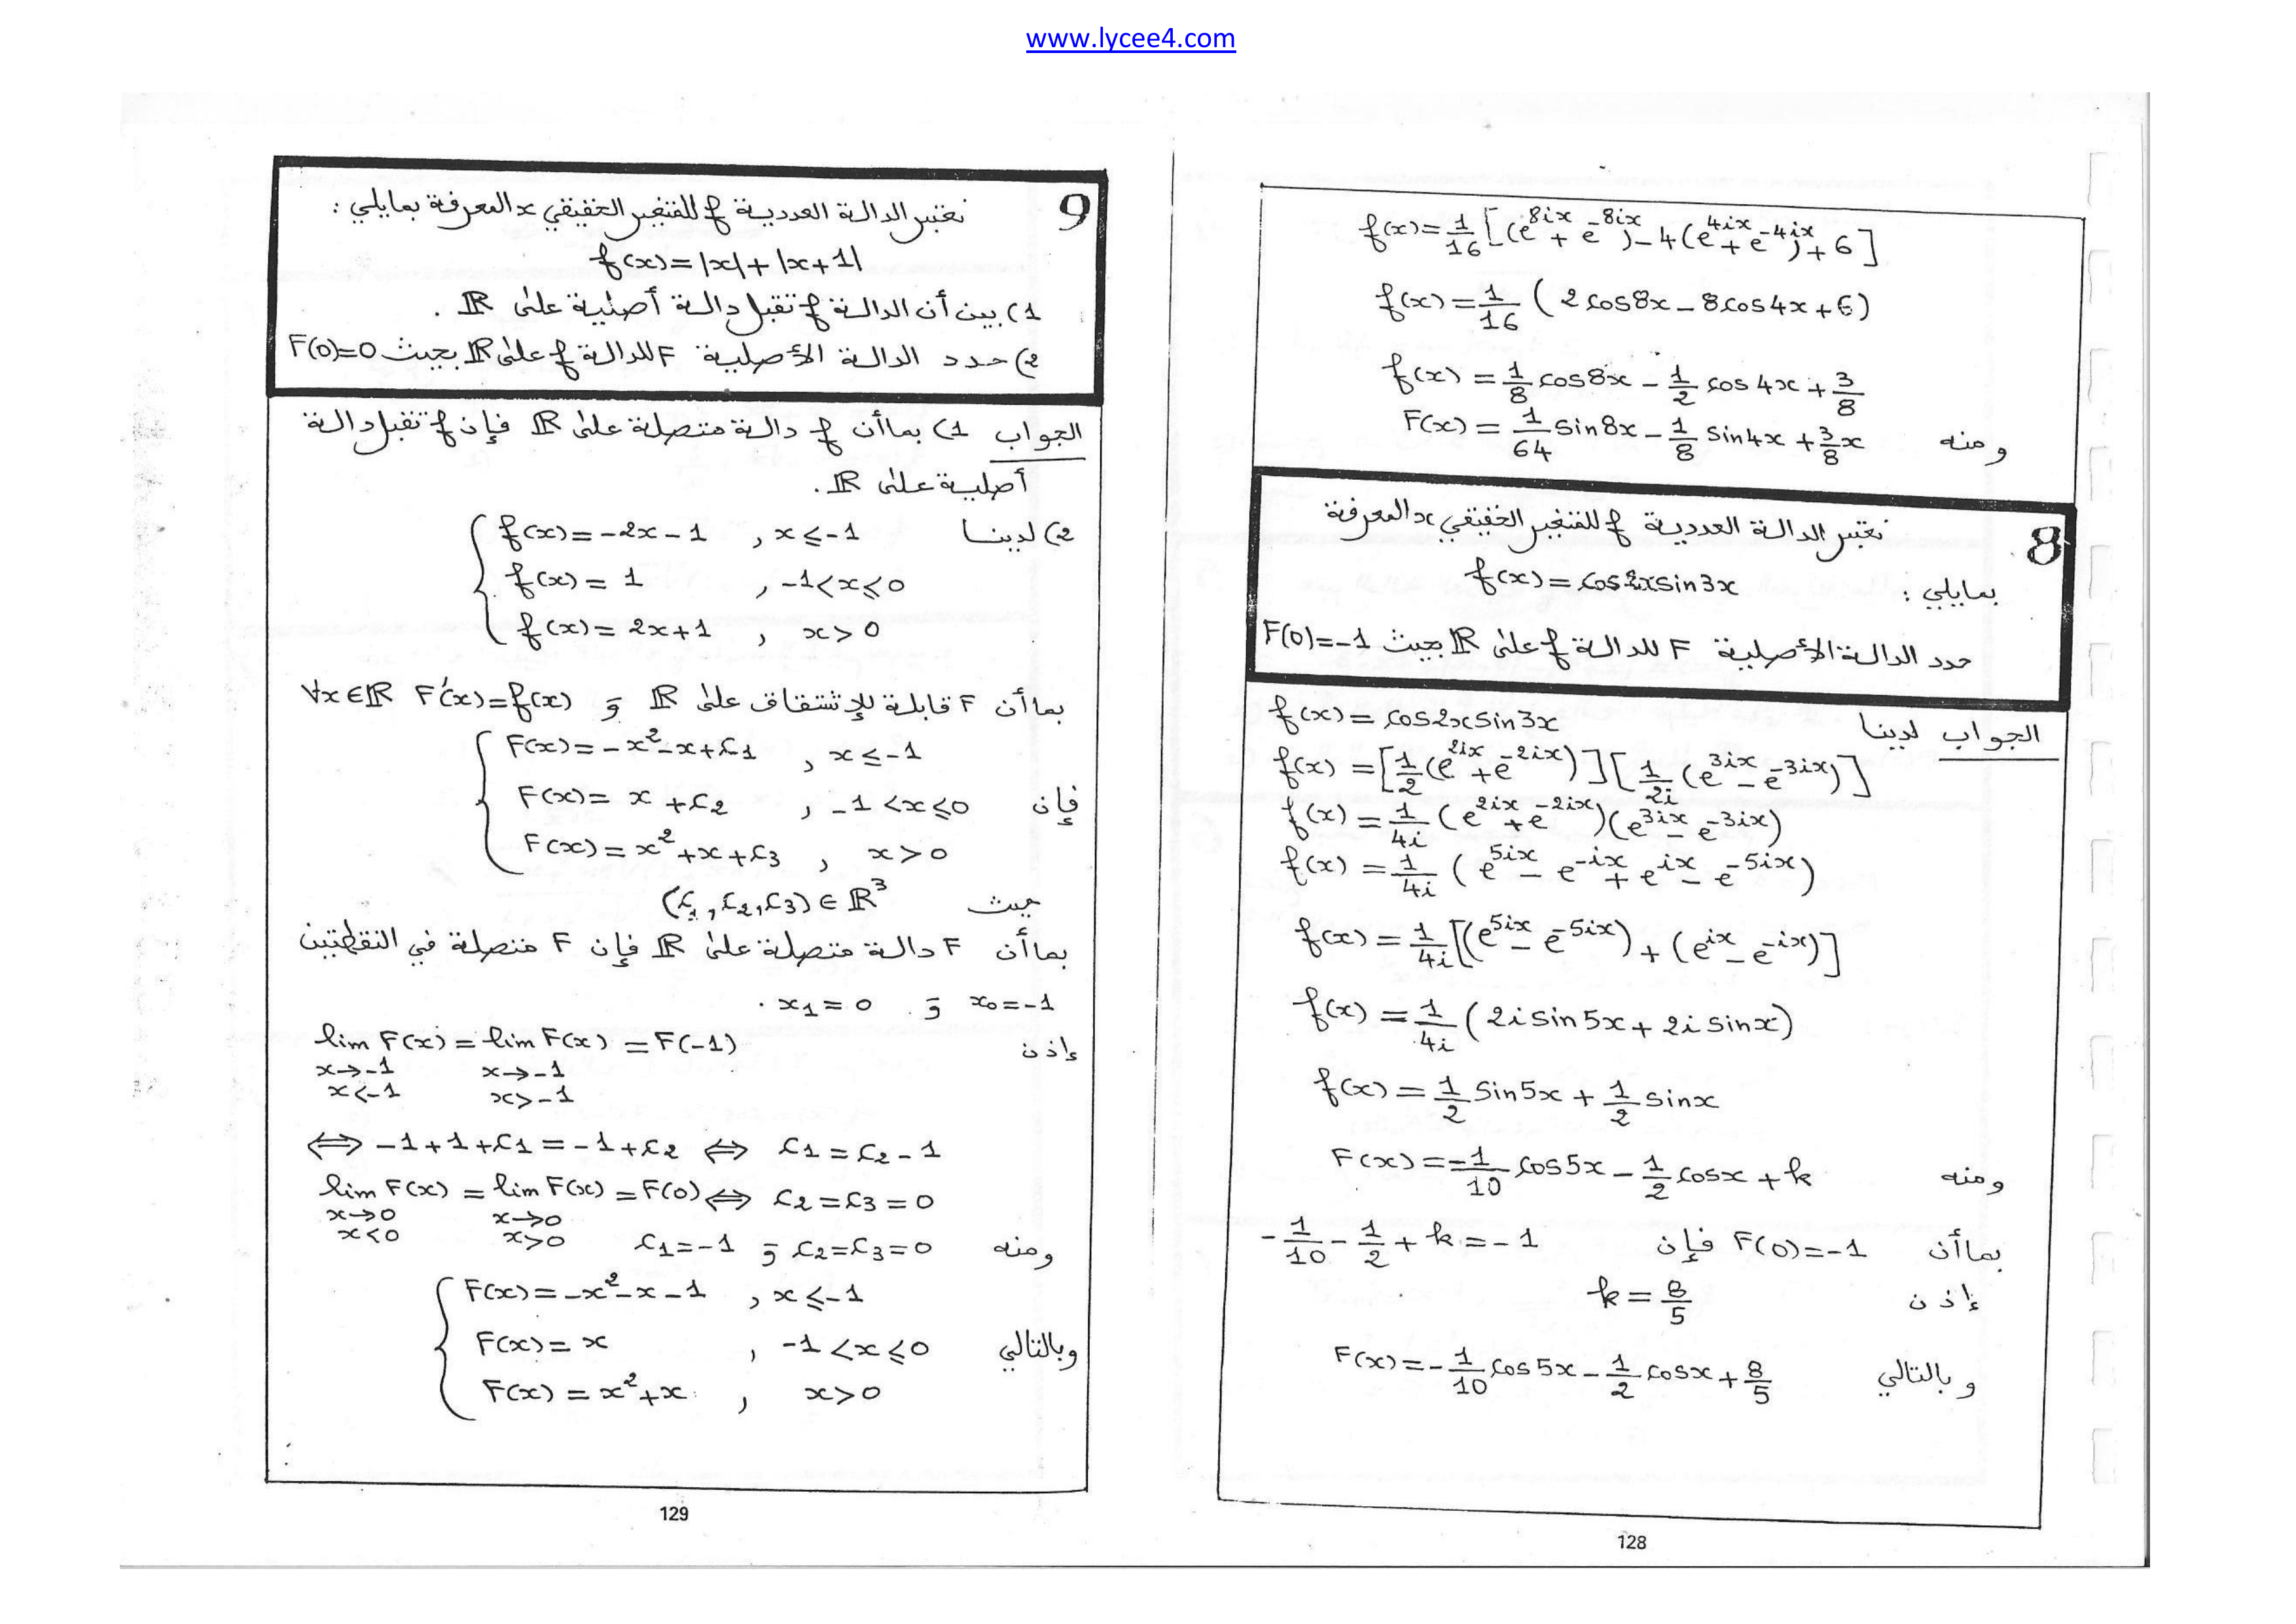 www.lycee4.com
f(x)=1/16[(e^{8ix}+e^{-8ix})-4(e^{4ix}+e^{-4ix})+6]
f(x)=1/16(2cos8x-8cos4x+6)
f(x)=1/8cos8x-1/2cos4x+3/8
ومنه F(x)=1/64sin8x-1/8sin4x+3/8x
8 نعتبر الدالة العددية f للمتغير الحقيقي x المعرفة
بمايلي : f(x)=cos2xsin3x
حدد الدالة الأصلية F للدالة f على ℝ بحيث F(0)=-1
الجواب لدينا f(x)=cos2xsin3x
f(x)=[1/2(e^{2ix}+e^{-2ix})][1/2i(e^{3ix}-e^{-3ix})]
f(x)=1/4i(e^{2ix}+e^{-2ix})(e^{3ix}-e^{-3ix})
f(x)=1/4i(e^{5ix}-e^{-ix}+e^{ix}-e^{-5ix})
f(x)=1/4i[(e^{5ix}-e^{-5ix})+(e^{ix}-e^{-ix})]
f(x)=1/4i(2isin5x+2isinx)
f(x)=1/2sin5x+1/2sinx
ومنه F(x)=-1/10cos5x-1/2cosx+k
بماأن F(0)=-1 فإن -1/10-1/2+k=-1
إذن k=8/5
وبالتالي F(x)=-1/10cos5x-1/2cosx+8/5
128
9 نعتبر الدالة العددية f للمتغير الحقيقي x المعرفة بمايلي :
f(x)=|x|+|x+1|
1) بين أن الدالة f تقبل دالة أصلية على ℝ .
2) حدد الدالة الأصلية F للدالة f على ℝ بحيث F(0)=0
الجواب 1) بماأن f دالة متصلة على ℝ فإن f تقبل دالة
أصلية على ℝ.
2) لدينا f(x)=-2x-1 , x≤-1
f(x)=1 , -1<x≤0
f(x)=2x+1 , x>0
بماأن F قابلة للإشتقاق على ℝ و ∀x∈ℝ F'(x)=f(x)
F(x)=-x²-x+c₁ , x≤-1
فإن F(x)=x+c₂ , -1<x≤0
F(x)=x²+x+c₃ , x>0
حيث (c₁,c₂,c₃)∈ℝ³
بماأن F دالة متصلة على ℝ فإن F متصلة في النقطتين
x₀=-1 و x₁=0 .
إذن lim F(x)=lim F(x)=F(-1)
x→-1 x→-1
x<-1 x>-1
⟺-1+1+c₁=-1+c₂⟺c₁=c₂-1
lim F(x)=lim F(x)=F(0)⟺c₂=c₃=0
x→0 x→0
x<0 x>0
ومنه c₂=c₃=0 و c₁=-1
F(x)=-x²-x-1 , x≤-1
وبالتالي F(x)=x , -1<x≤0
F(x)=x²+x , x>0
129